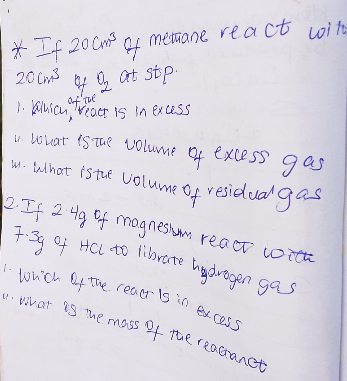 * If 20cm³ of memane react with
20cm³ of O₂ at stp.
i. which, of the react is in excess
ii. what is the volume of excess gas
iii. what is the volume of residual gas
2. If 2.4g of magnesium react with
7.3g of HCL to librate hydrogen gas
i. which of the react is in excess
ii. what is the mass of the reactanct